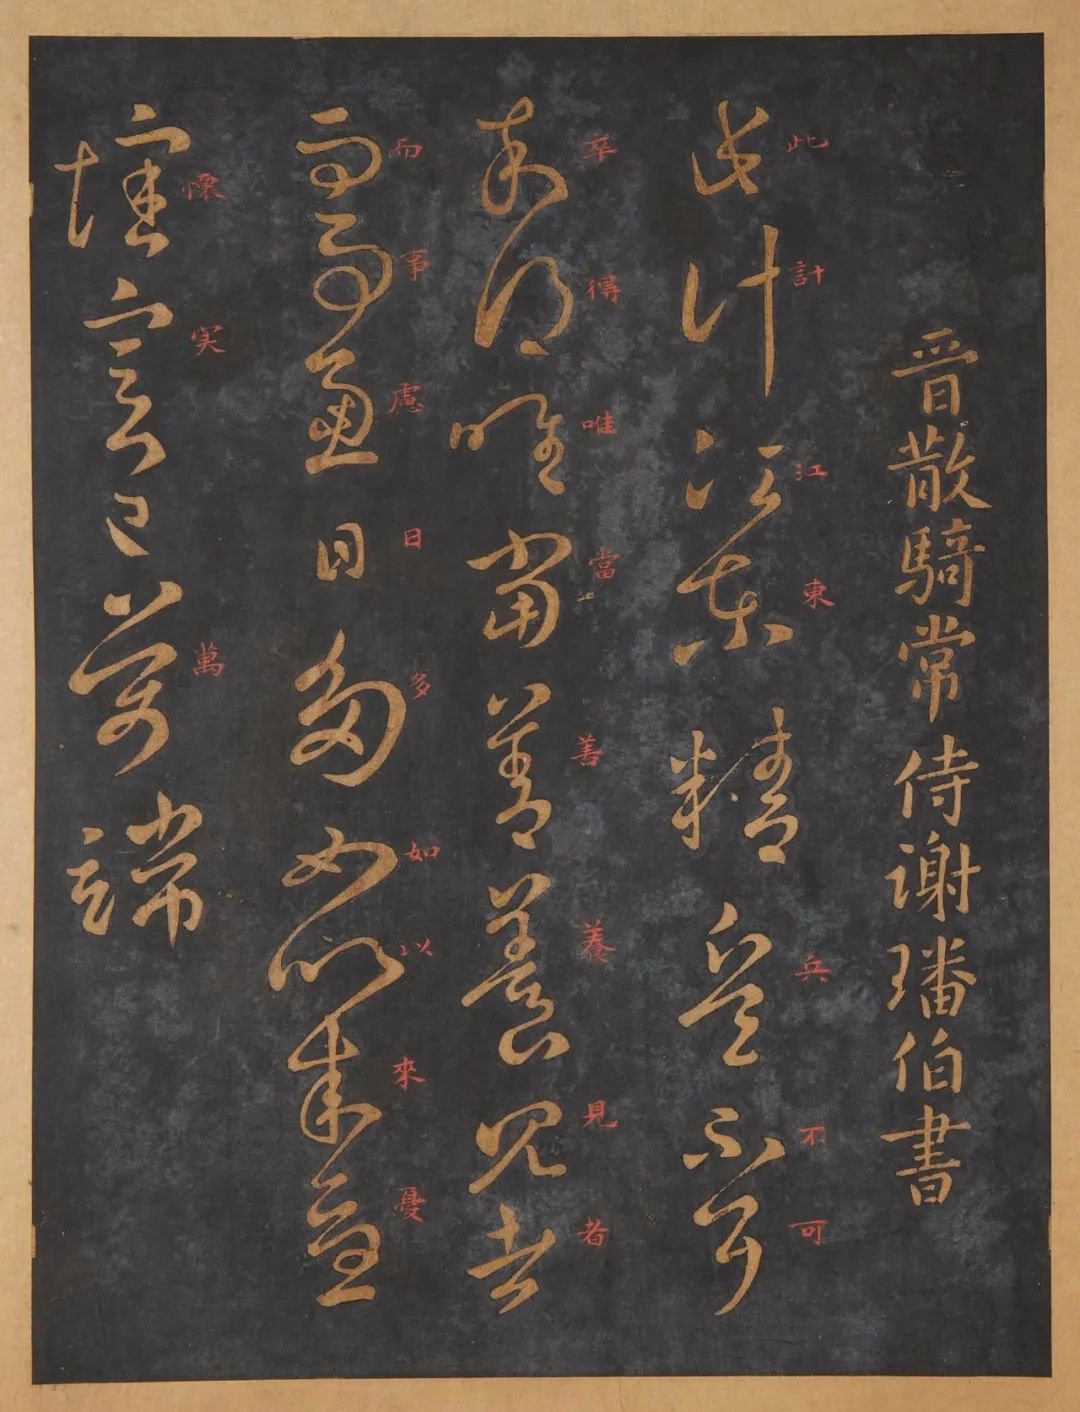 晋散騎常侍謝璠伯書
此計江東兵不可
此計江東精兵不可
卒得唯當善養見者
卒得唯當善養見者
而事慮日多如以來憂
而事慮日多如以來憂
懍実萬
懍実已萬端